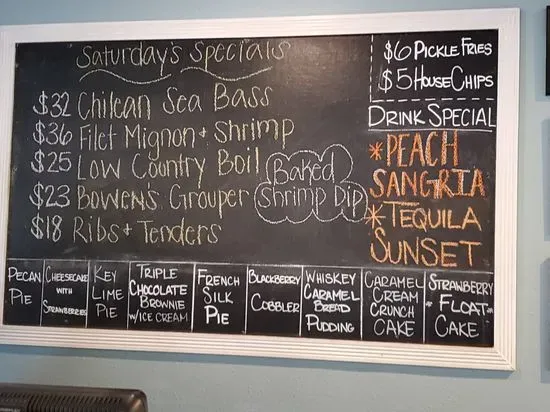 Saturday's Specials
$32 Chilean Sea Bass
$36 Filet Mignon + Shrimp
$25 Low Country Boil
$23 Bowen's Grouper
$18 Ribs + Tenders
Baked
Shrimp Dip
$6 Pickle Fries
$5 House Chips
Drink Special
*Peach
Sangria
*Tequila
Sunset
Pecan
Pie
Cheesecake
with
Strawberries
Key
Lime
Pie
Triple
Chocolate
Brownie
w/Ice Cream
French
Silk
Pie
Blackberry
Cobbler
Whiskey
Caramel
Bread
Pudding
Caramel
Cream
Crunch
Cake
Strawberry
*Float*
Cake